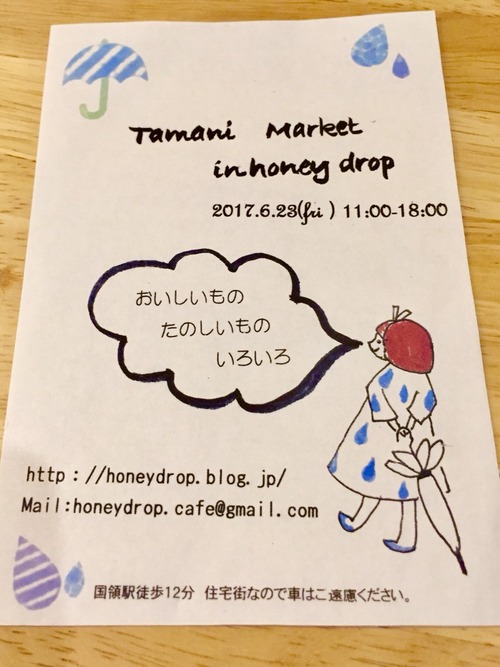 Tamani Market
in honey drop
2017.6.23(fri) 11:00-18:00
おいしいもの
たのしいもの
いろいろ
http://honeydrop.blog.jp/
Mail:honeydrop.cafe@gmail.com
国領駅徒歩12分 住宅街なので車はご遠慮ください。